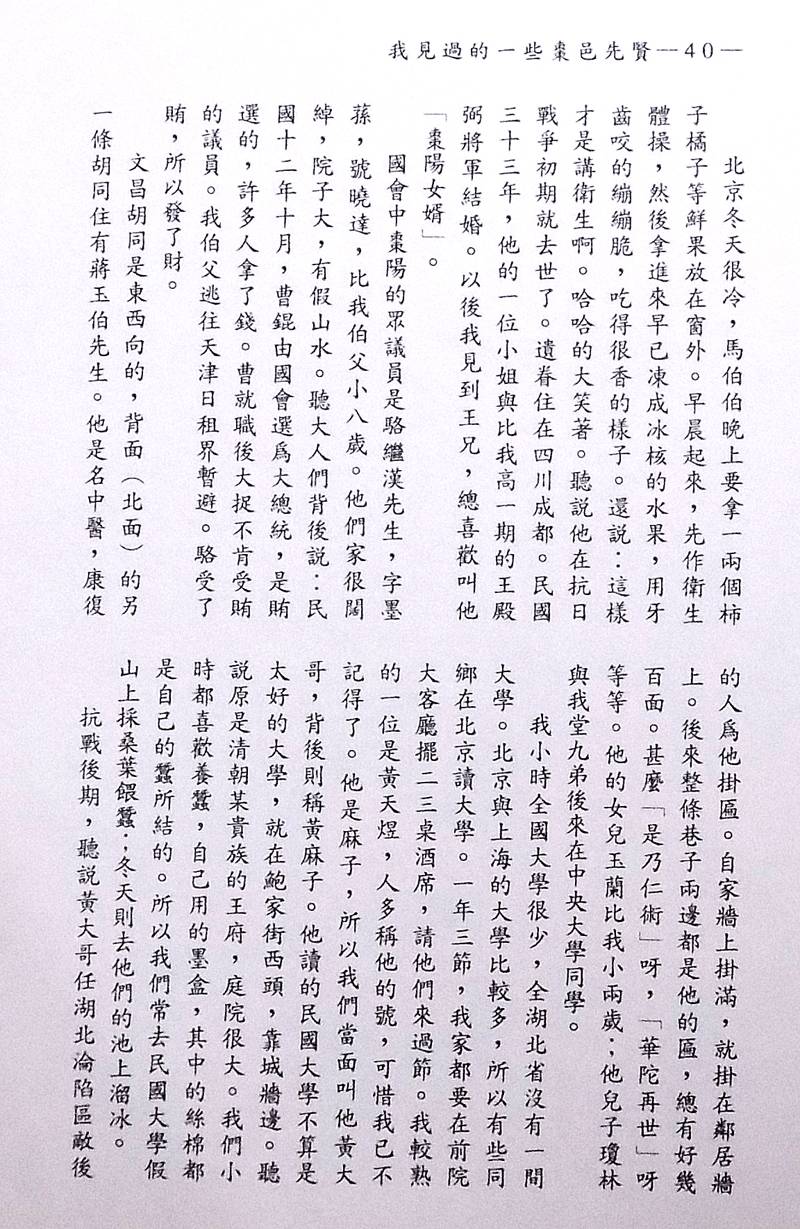 我見過的一些棗邑先賢—40—
北京冬天很冷，馬伯伯晚上要拿一兩個柿
子橘子等鮮果放在窗外。早晨起來，先作衛生
體操，然後拿進來早已凍成冰核的水果，用牙
齒咬的繃繃脆，吃得很香的樣子。還說：這樣
才是講衛生啊。哈哈的大笑著。聽說他在抗日
戰爭初期就去世了。遺眷住在四川成都。民國
三十三年，他的一位小姐與比我高一期的王殿
弼將軍結婚。以後我見到王兄，總喜歡叫他
「棗陽女婿」。
國會中棗陽的眾議員是駱繼漢先生，字墨
蓀，號曉達，比我伯父小八歲。他們家很闊
綽，院子大，有假山水。聽大人們背後說：民
國十二年十月，曹錕由國會選爲大總統，是賄
選的，許多人拿了錢。曹就職後大捉不肯受賄
的議員。我伯父逃往天津日租界暫避。駱受了
賄，所以發了財。
文昌胡同是東西向的，背面（北面）的另
一條胡同住有蔣玉伯先生。他是名中醫，康復
的人爲他掛匾。自家牆上掛滿，就掛在鄰居牆
上。後來整條巷子兩邊都是他的匾，總有好幾
百面。甚麼「是乃仁術」呀，「華陀再世」呀
等等。他的女兒玉蘭比我小兩歲；他兒子瓊林
與我堂九弟後來在中央大學同學。
我小時全國大學很少，全湖北省沒有一間
大學。北京與上海的大學比較多，所以有些同
鄉在北京讀大學。一年三節，我家都要在前院
大客廳擺二三桌酒席，請他們來過節。我較熟
的一位是黃天煜，人多稱他的號，可惜我已不
記得了。他是麻子，所以我們當面叫他黃大
哥，背後則稱黃麻子。他讀的民國大學不算是
太好的大學，就在鮑家街西頭，靠城牆邊。聽
說原是清朝某貴族的王府，庭院很大。我們小
時都喜歡養蠶，自己用的墨盒，其中的絲棉都
是自己的蠶所結的。所以我們常去民國大學假
山上採桑葉餵蠶；冬天則去他們的池上溜冰。
抗戰後期，聽說黃大哥任湖北淪陷區敵後